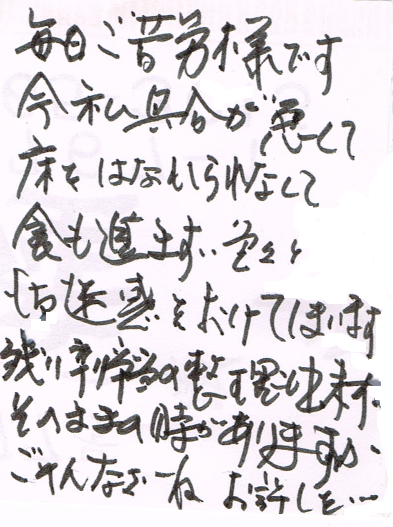 毎日ご苦労様です
今私具合が悪くて
床をはなれられなくて
食も進まず、色々と
ご迷惑をおかけしています
残り 弁当の整理も出来ず
そのままの時がありますが、
ごめんなさいね お許しを…